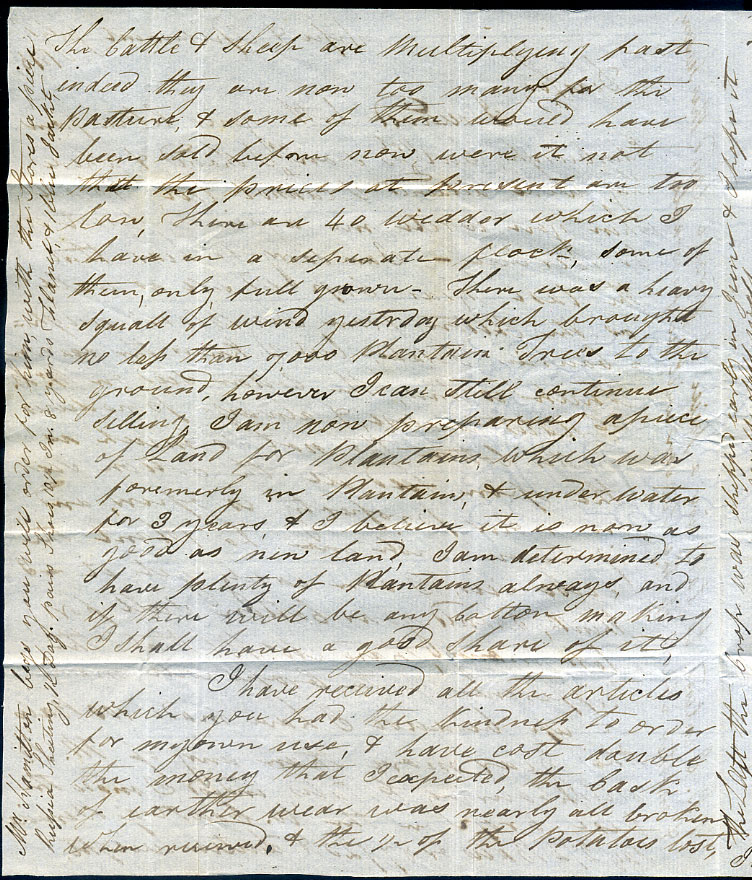 The Cattle & Sheep are Multiplying fast
indeed they are now too many for the
pasture, & some of them would have
been sold before now were it not
that the prices at present are too
low, There are 40 wedder which I
have in a seperate flock, some of
them, only, full grown - There was a heavy
squall of wind yestrday which brought
no less than 7000 Plantain Trees to the
ground, however I can still continue
selling, I am now preparing a piece
of Land for Plantains, which was
foremerly in Plantain, & under water
for 3 years, & I believe it is now as
good as new land, I am determined to
have plenty of Plantains always, and
if there will be any Cotton making
I shall have a good share of it,
I have received all the articles
which you had the kindness to order
for my own use, & have cost double
the money that I expected, the Cask
of earther wear was nearly all broken
when received, & the ½ of the Potatoes lost,
Mr. Hamilton begs you will order for him with the Stores a piece
Sheeting, pairs Shoes 8 yards Flannel, & blue Jacket
The last the Crop was shipped early in June & I hope it